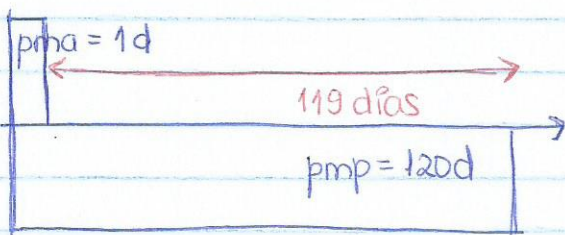 pma = 1d
119 días
pmp = 120d